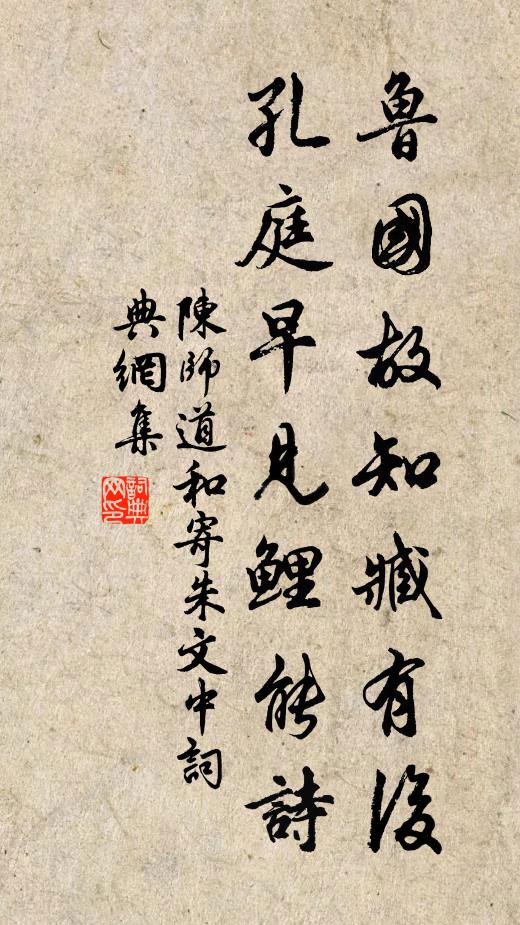 魯國故知臧有後
孔庭早見鯉能詩
陳師道和寄朱文中詞
典網集
詞典网印